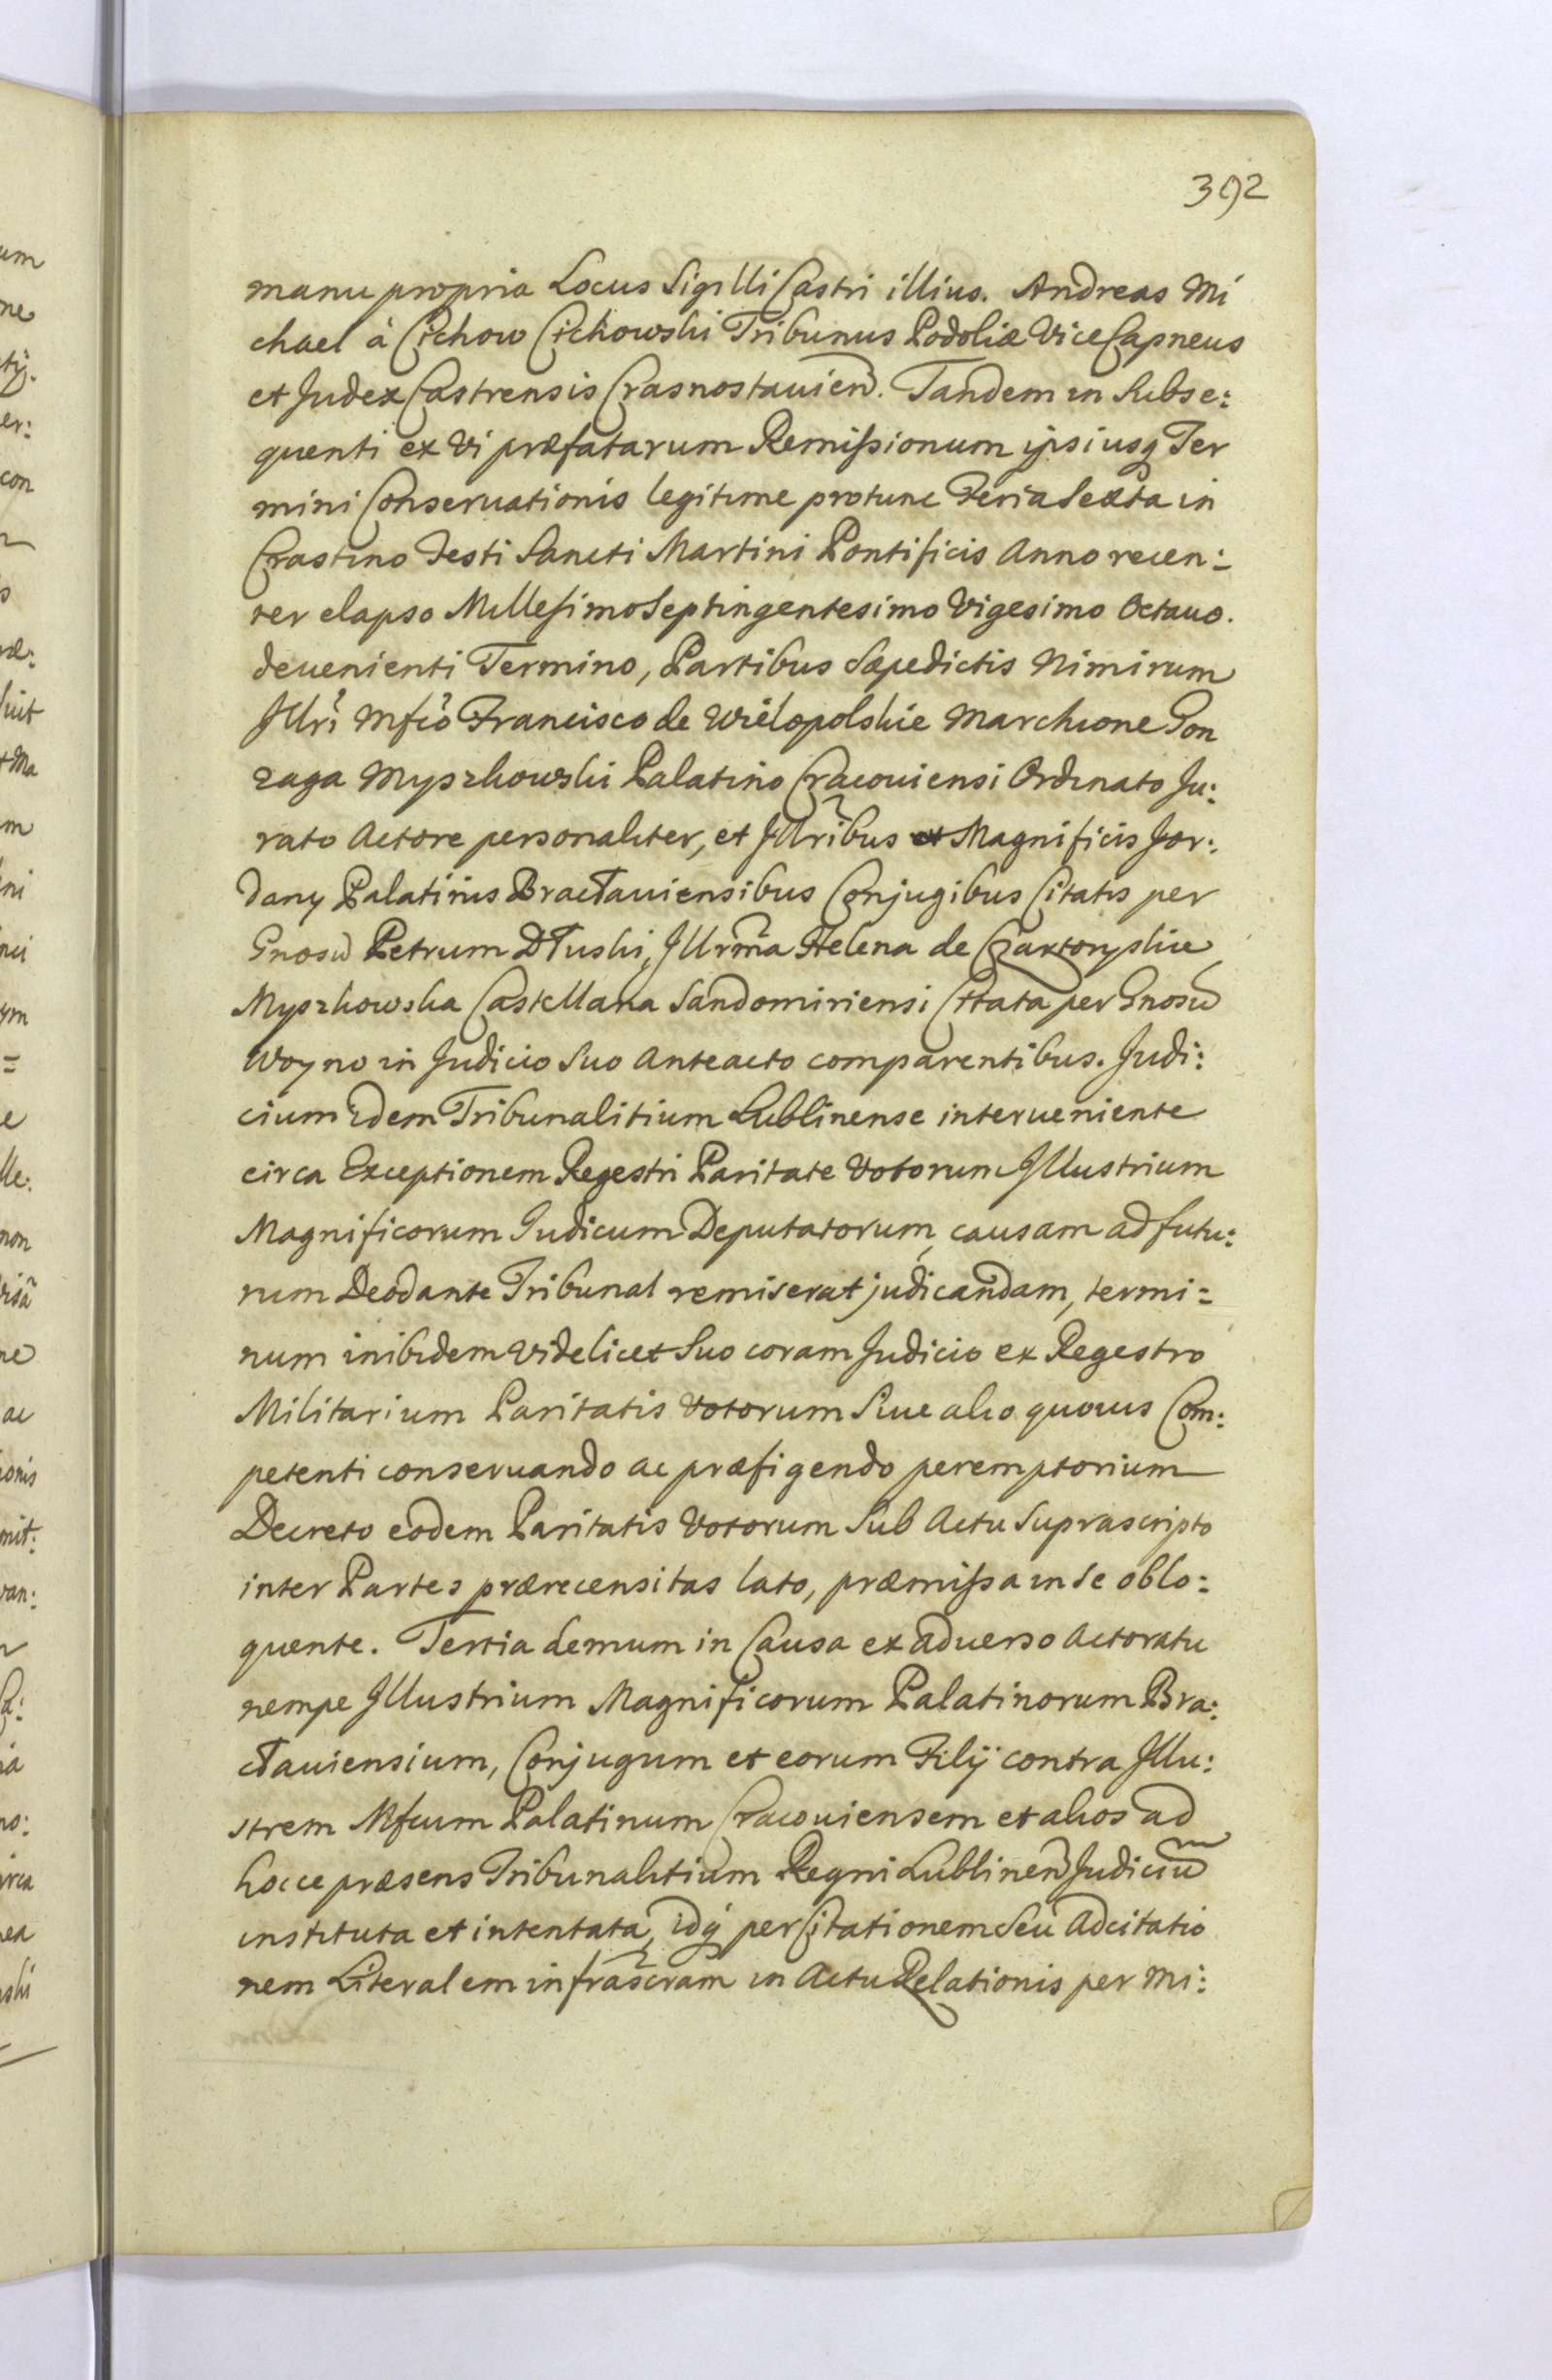 392
manu propria Locus Sigilli Castri illius. Andreas Mi
chael à Cichow Cichowski Tribunus Podoliæ Vice Capneus
et Judex Castrensis Crasnostavien̄. Tandem in Subse:
quenti ex Vi præfatarum Remissionum ipsiusq Ter
mini Conservationis legitime protunc Feria Sexta in
Crastino Festi Sancti Martini Pontificis Anno recen:
ter elapso Millesimo Septingentesimo Vigesimo Octavo.
devenienti Termino, Partibus Sæpedictis Nimirum
Jllri Mfco Francisco de Wielopolskie Marchione Gon
zaga Myszkowski Palatino Cracoviensi Ordinato Ju:
rato Actore personaliter, et Jllribus et Magnificis Jor:
dany Palatinis Bractaviensibus Conjugibus Citatis per
Gnosū Petrum Dłuski, Jllrm̄a Helena de Czartoryskie
Myszkowska Castellana Sandomiriensi Citata per Gnosū
Woyno in Judicio Suo Anteacto comparentibus. Judi:
cium idem Tribunalitium Lublinense interveniente
circa Exceptionem Regestri Paritate Votorum Jllustrium
Magnificorum Judicum Deputatorum, causam ad futu:
rum Deodante Tribunal remiserat judicandam, termi:
num inibidem videlicet Suo coram Judicio ex Regestro
Militarium Paritatis Votorum Sive alio quovis Com:
petenti conservando ac præfigendo peremptorium
Decreto eodem Paritatis Votorum Sub Actu Suprascripto
inter Partes prærecensitas lato, præmissa in Se oblo:
quente. Tertia demum in Causa ex adverso Actoratu
nempe Jllustrium Magnificorum Palatinorum Bra:
ctaviensium, Conjugum et eorum Filij contra Jllu:
strem Mfcum Palatinum Cracoviensem et alios ad
hocce præsens Tribunalitium Regni Lublinen̄ Judiciū
instituta et intentata, idq̨ per Citationem Seu Adcitatio
nem Literalem infrascram in Actu Relationis per Mi: